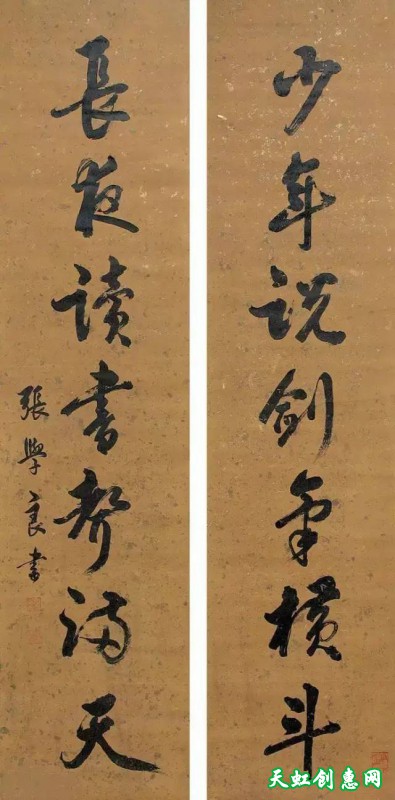 少年說劍氣橫斗
長夜讀書聲滿天
張學良書
天虹创惠网